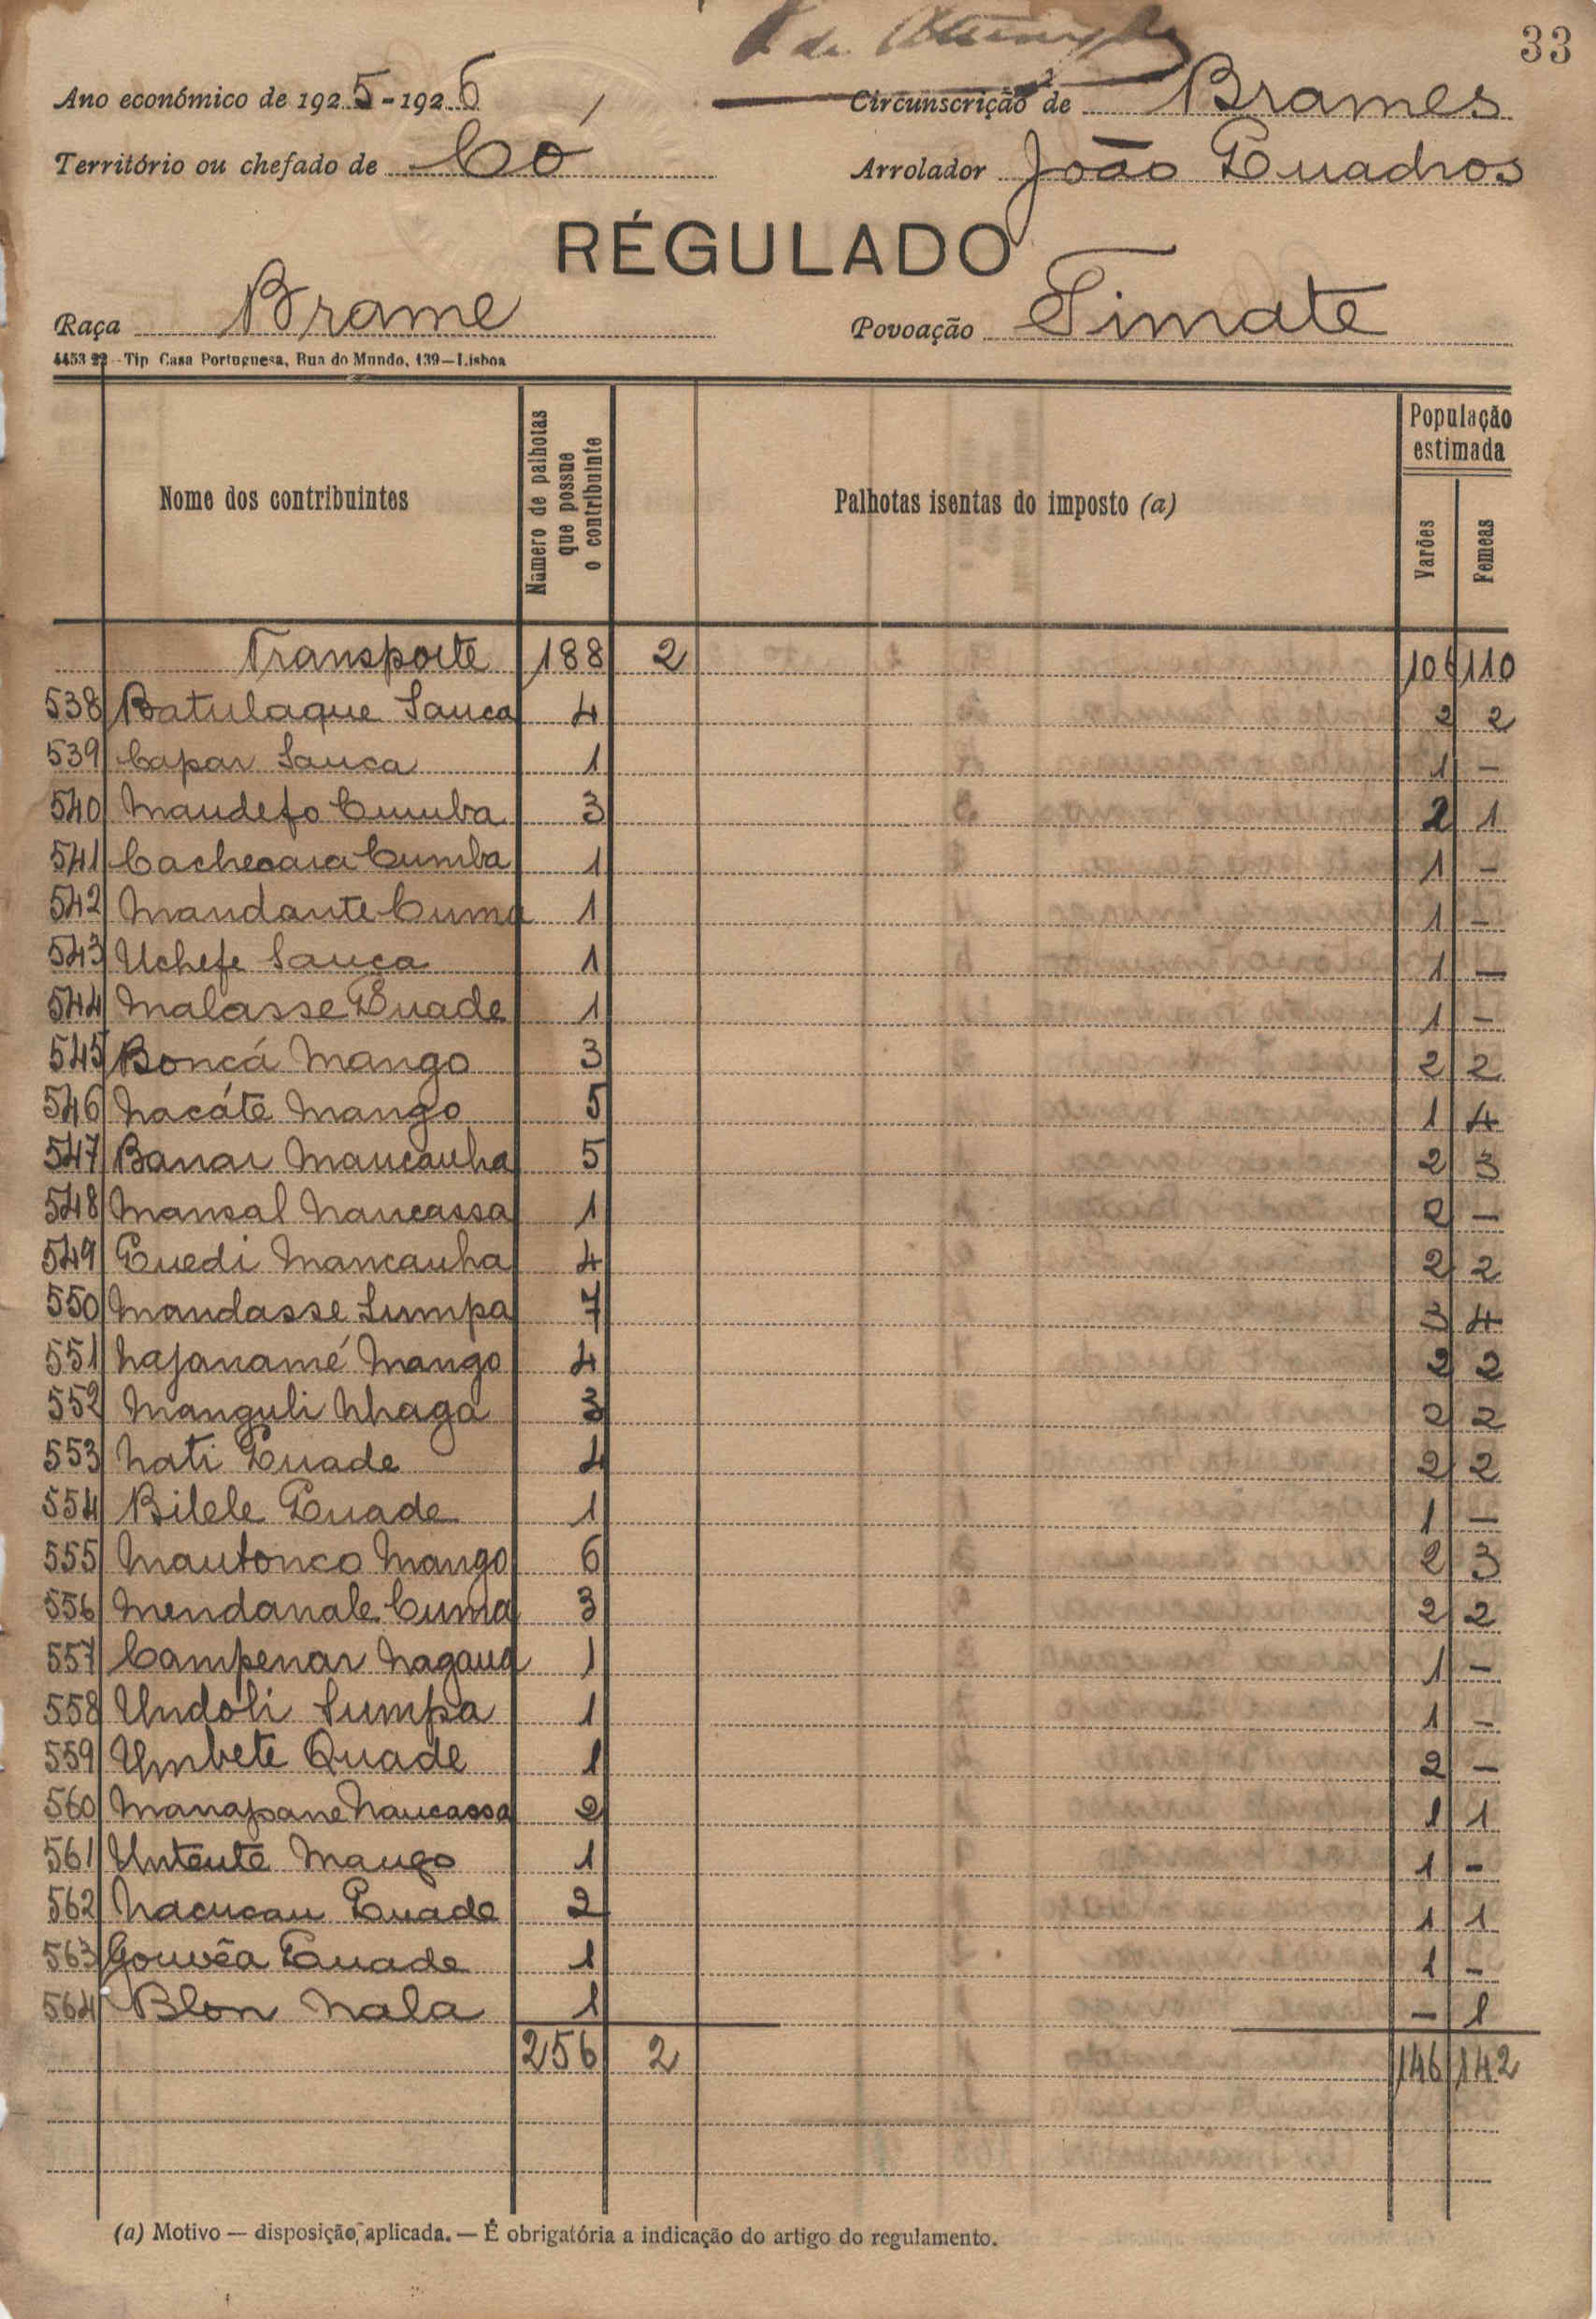 33
Ano económico de 1925-1926 Circunscrição de Brames
Território ou chefado de Có Arrolador João Quadros
RÉGULADO
Raça Brame Povoação Timate
4453 22 - Tip Casa Portuguesa, Rua do Mundo, 139—Lisboa
Nome dos contribuintes Número de palhotas que possue o contribuinte Palhotas isentas do imposto (a) População estimada Varões Femeas
Transporte 188 2 106 110
538 Batulaque Sanca 4 2 2
539 Capar Sanca 1 1 -
540 Mandefo Cumba 3 2 1
541 Cachecara Cumba 1 1 -
542 Mandante Cuma 1 1 -
543 Uchefe Sanca 1 1 -
544 Malasse Quade 1 1 -
545 Boncá Mango 3 2 2
546 Nacáte Mango 5 1 4
547 Banar Mancanha 5 2 3
548 Mansal Nancassa 1 2 -
549 Quedi Mancanha 4 2 2
550 Mandasse Sumpa 7 3 4
551 Najanamé Mango 4 2 2
552 Manguli Nhaga 3 2 2
553 Nati Quade 4 2 2
554 Bilele Quade 1 1 -
555 Mautonco Mango 6 2 3
556 Mendanale Cuma 3 2 2
557 Campenar Nagana 1 1 -
558 Undoli Sumpa 1 1 -
559 Umbete Quade 1 2 -
560 Manapane Nancassa 2 1 1
561 Untente Mango 1 1 -
562 Nacucau Quade 2 1 1
563 Gouvêa Quade 1 1 -
564 Blon Nala 1 - 1
256 2 146 142
(a) Motivo — disposição, aplicada. — É obrigatória a indicação do artigo do regulamento.